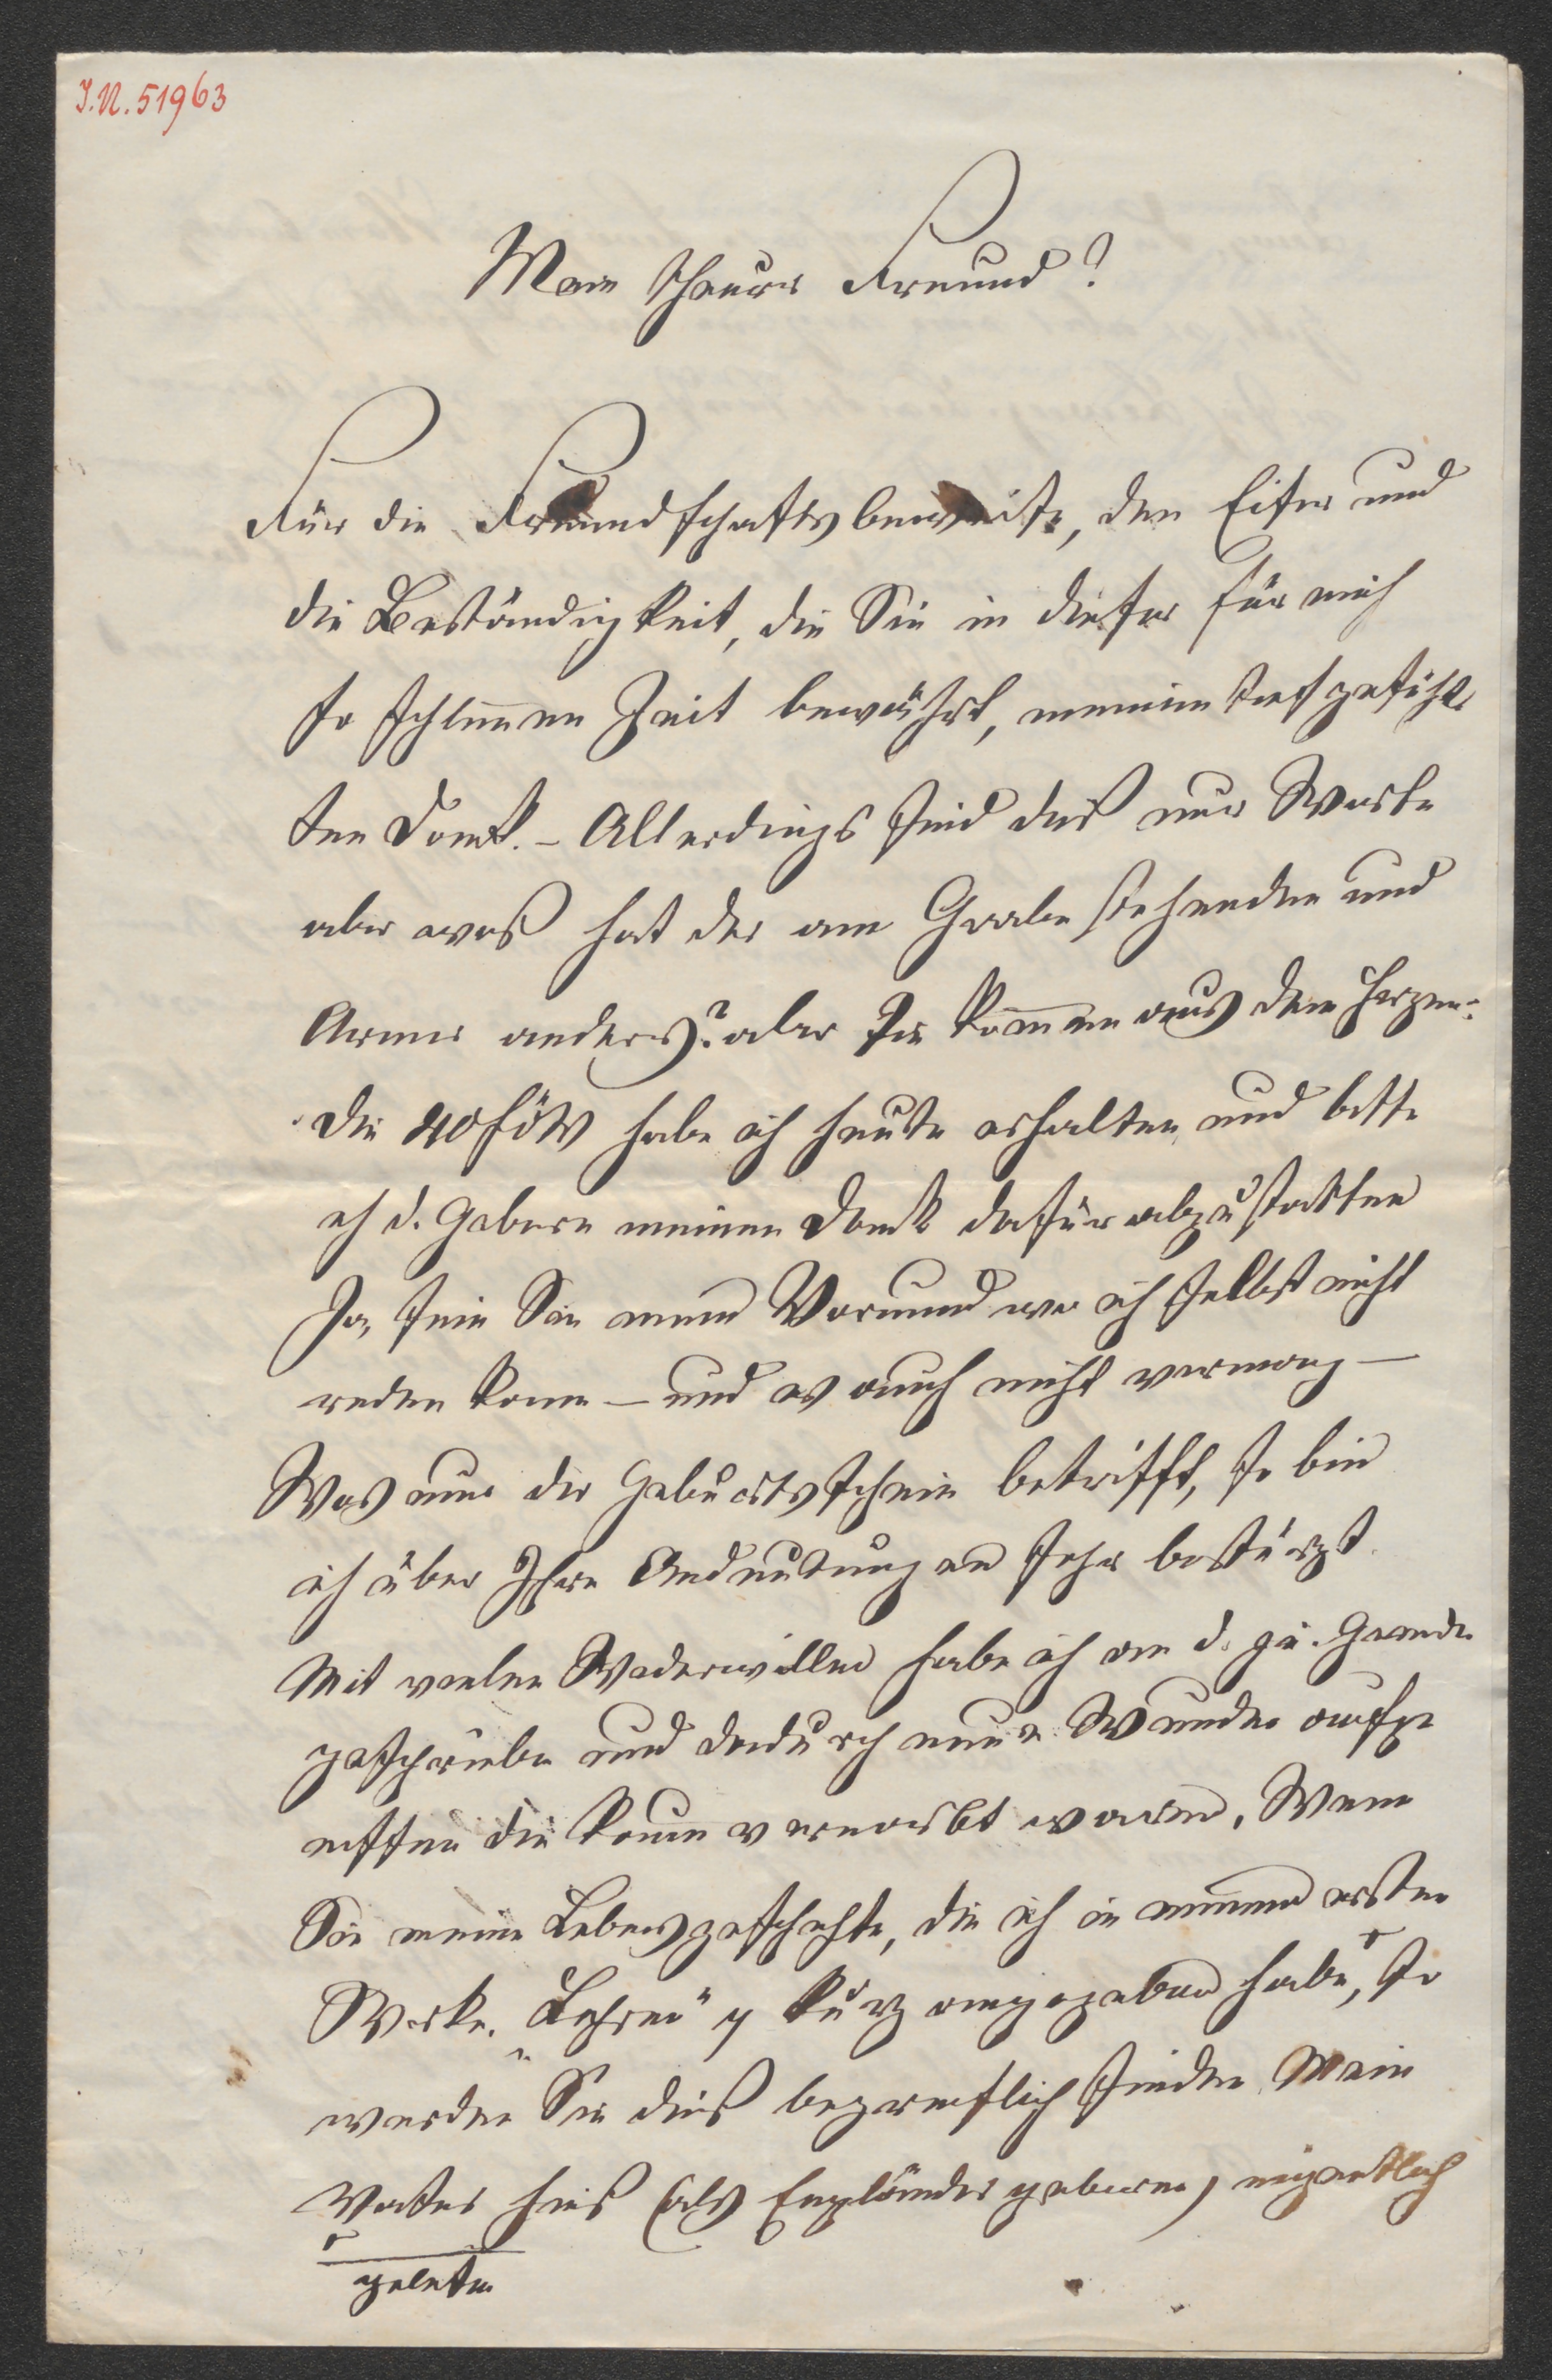 I.N. 51963
Mein theurer Freund!
Für die Freundschaftsbeweise, den Eifer und
die Beständigkeit, die Sie in dieser für mich
so schlimen Zeit bewährt, meinen tiefgefühl-
ten Dank. – Allerdings sind dieß nur Worte
aber was hat der am Grabe stehenden und
Armer anders? aber sie kommen aus dem Herzen:
Die 40 f öW habe ich heute erhalten und bitte
ich d. Gebern meinen Dank dafür abzustatten
Ja, sein Sie mein Vormund wo ich selbst nicht
reden kann – und es auch nicht vermag –
Was nun der Geburtsschein betrifft, so bin
ich über Ihre Andeutungen sehr bestürzt.
Mit vielen Widerwillen habe ich an d. Gemeinde
geschrieben und dadurch neue Wunden aufge
rissen die kaum vernarbt waren. Wenn
Sie meine Lebensgeschichte, die ich in meinem ersten
Werke. „Lehren" kurz angegeben habe, so
werden Sie dieß begreiflich finden Mein
Vater hieß (als Engländer geboren) eigentlich
gelesen